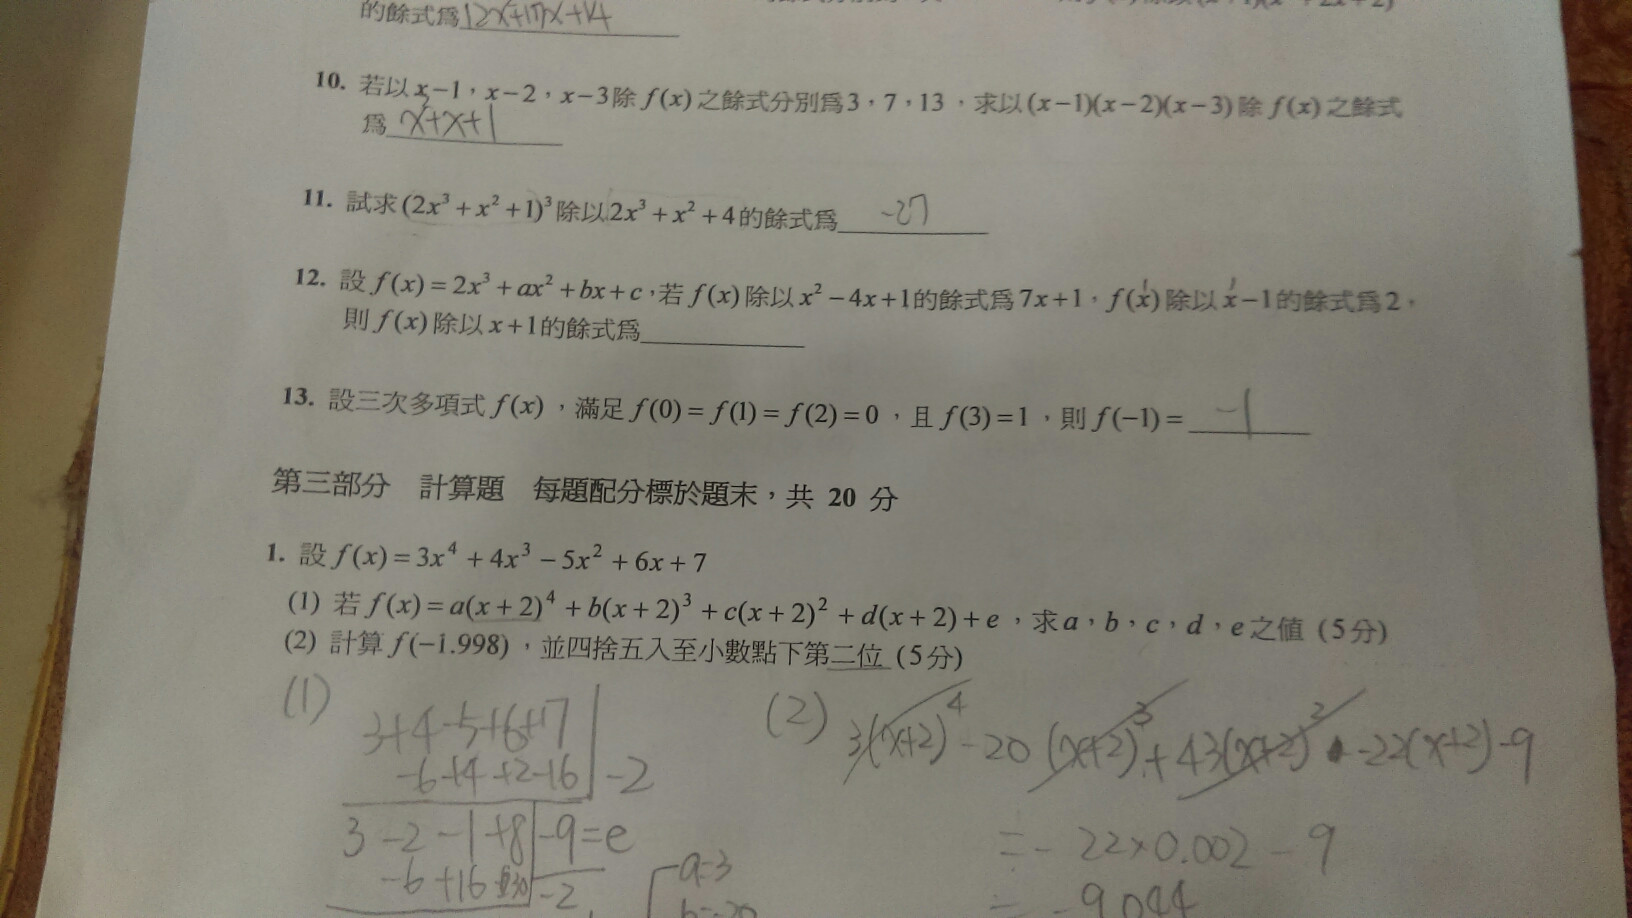 的餘式為 12x²+17x+14
10. 若以 x−1，x−2，x−3除 f(x) 之餘式分別為3，7，13，求以(x−1)(x−2)(x−3)除 f(x) 之餘式
為 x²+x+1
11. 試求(2x³+x²+1)³除以2x³+x²+4的餘式為 -27
12. 設 f(x)=2x³+ax²+bx+c，若 f(x)除以x²−4x+1的餘式為7x+1，f(x)除以x−1的餘式為2，
則 f(x)除以x+1的餘式為
13. 設三次多項式 f(x)，滿足 f(0)=f(1)=f(2)=0，且 f(3)=1，則 f(−1)= -1
第三部分 計算題 每題配分標於題末，共 20 分
1. 設 f(x)=3x⁴+4x³−5x²+6x+7
(1) 若 f(x)=a(x+2)⁴+b(x+2)³+c(x+2)²+d(x+2)+e，求a，b，c，d，e之值 (5分)
(2) 計算 f(−1.998)，並四捨五入至小數點下第二位 (5分)
(1)
3+4-5+6+7
-6+4+2-16 -2
3-2-1+8 -9=e
-6+16-30 -2
a=3
b=-20
(2) 3(x+2)⁴-20(x+2)³+43(x+2)²-22(x+2)-9
=-22×0.002-9
=-9.044